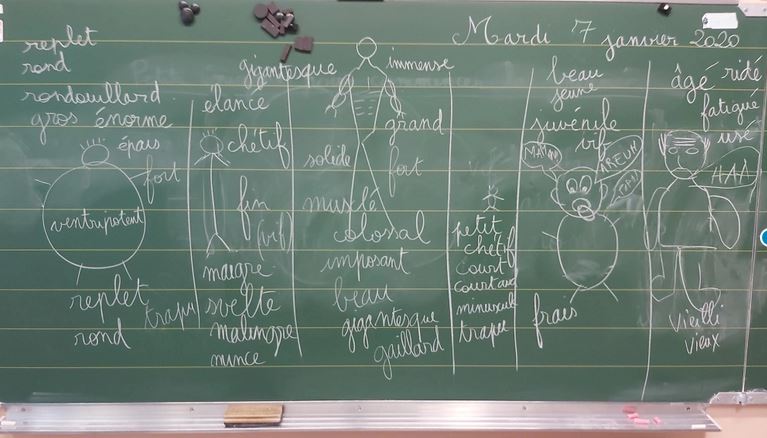 Mardi 7 janvier 2020
replet
rond
rondouillard
gros énorme
épais
fort
ventripotent
replet
rond
trapu
élancé
chétif
fin
(vif)
maigre
svelte
malingre
mince
gigantesque
immense
grand
solide
fort
musclé
colossal
imposant
beau
gigantesque
gaillard
petit
chétif
court
minuscule
trapu
beau
jeune
juvénile
vif
AREUH
frais
âgé ridé
fatigué
usé
AAA
vieilli
vieux